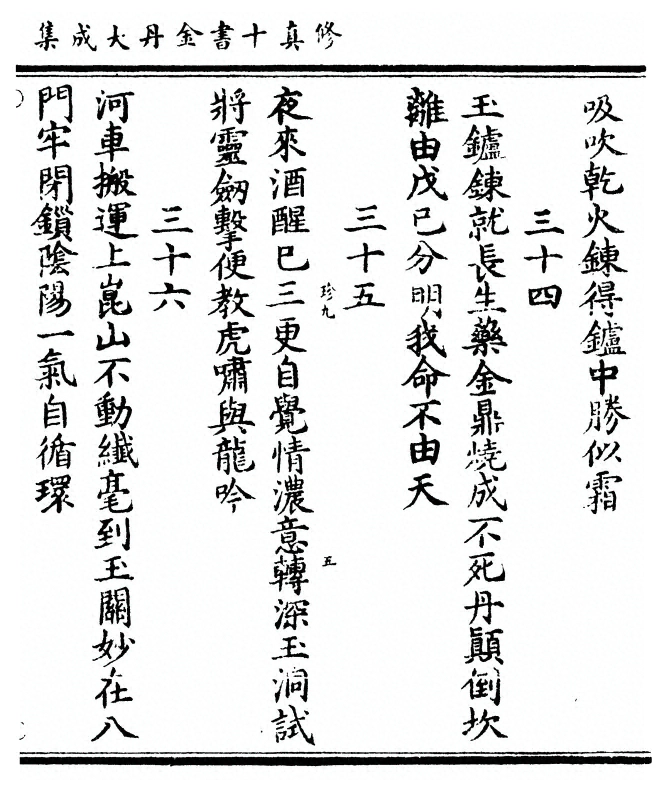 修真十書金丹大成集
吸吹乾火鍊得鑪中勝似霜
三十四
玉鑪鍊就長生藥金鼎燒成不死丹顚倒坎
離由戊己分明我命不由天
三十五
珍九
五
夜來酒醒巳三更自覺情濃意轉深玉洞試
將靈劒擊便教虎嘯與龍吟
三十六
河車搬運上崑山不動纖毫到玉關妙在八
門牢閉鎖陰陽一氣自循環